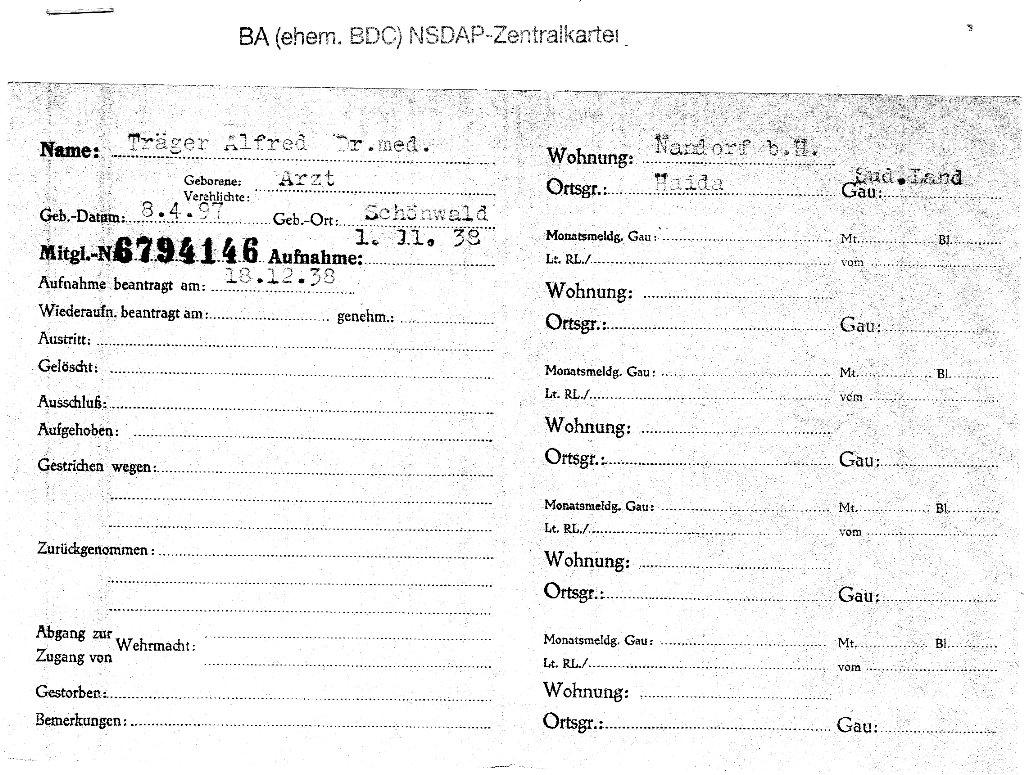 BA (ehem. BDC) NSDAP-Zentralkartei
Name: Träger Alfred Dr.med.
Geborene: Arzt
Verehlichte:
Geb.-Datum: 8.4.97 Geb.-Ort: Schönwald
Mitgl.-Nr. 6794146 Aufnahme: 1. 11. 38
Aufnahme beantragt am: 18.12.38
Wiederaufn. beantragt am: genehm.:
Austritt:
Gelöscht:
Ausschluß:
Aufgehoben:
Gestrichen wegen:
Zurückgenommen:
Abgang zur
Wehrmacht:
Zugang von
Gestorben:
Bemerkungen:
Wohnung: b.H.
Ortsgr.: Haida Gau: Sud.Land
Monatsmeldg. Gau: Mt. Bl.
Lt. RL./ vom
Wohnung:
Ortsgr.: Gau:
Monatsmeldg. Gau: Mt. Bl.
Lt. RL./ vom
Wohnung:
Ortsgr.: Gau:
Monatsmeldg. Gau: Mt. Bl.
Lt. RL./ vom
Wohnung:
Ortsgr.: Gau:
Monatsmeldg. Gau: Mt. Bl.
Lt. RL./ vom
Wohnung:
Ortsgr.: Gau: